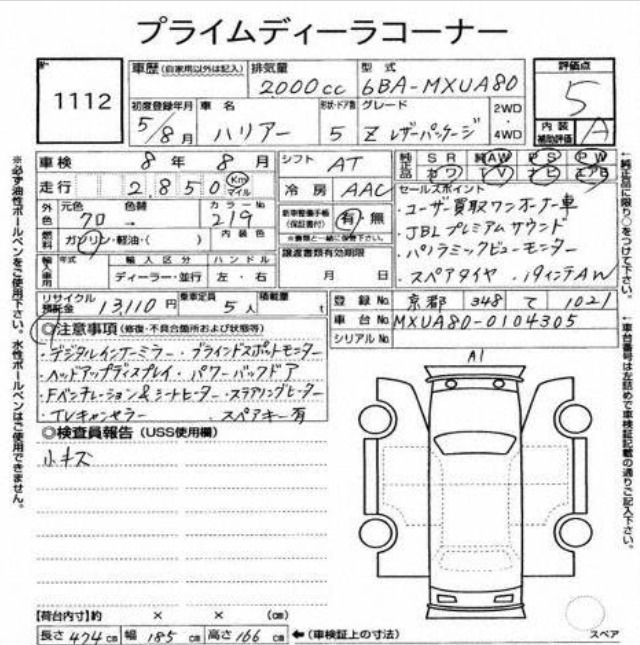 プライムディーラコーナー
1112
車歴(自家用以外は記入) 排気量 2000cc 型式 6BA-MXUA80
評価点 5
初度登録年月 5/8月 車名 ハリアー 形状・ドア数 5 グレード Z レザーパッケージ 2WD・4WD
内装補助評価 A
車検 8年8月 シフト AT 純正品 SR 純AW PS PW
カワ TV ナビ エアB
走行 2850 Km マイル 冷房 AAC
セールスポイント
外色 元色 クロ 色替 → カラーNo 219
新車整備手帳(保証書付) 有・無
※書類と一緒に保管下さい。
・ユーザー買取ワンオーナー車
・JBLプレミアムサウンド
・パノラミックビューモニター
・スペアタイヤ ・19インチAW
燃料 ガソリン・軽油・( ) 内装色
譲渡書類有効期限
月 日
輸入車用 年式 輸入区分 ハンドル
ディーラー・並行 左・右
リサイクル預託金 13,110円 乗車定員 5人 積載量 t
登録No. 京都 348 て 1021
車台No. MXUA80-0104305
シリアルNo.
◎注意事項(修復・不具合箇所および状態等)
・デジタルインナーミラー・ブラインドスポットモニター
・ヘッドアップディスプレイ・パワーバックドア
・Fベンチレーション&シートヒーター・ステアリングヒーター
・TVキャンセラー ・スペアキー有
◎検査員報告(USS使用欄)
小キズ
A1
スペア
【荷台内寸】約 × × (cm)
長さ 474cm 幅 185cm 高さ 166cm ←(車検証上の寸法)
※必ず油性ボールペンをご使用下さい。水性ボールペンはご使用できません。
↑純正品に限り○をつけて下さい。
↑車台番号は左詰めで車検証記載の通りご記入下さい。